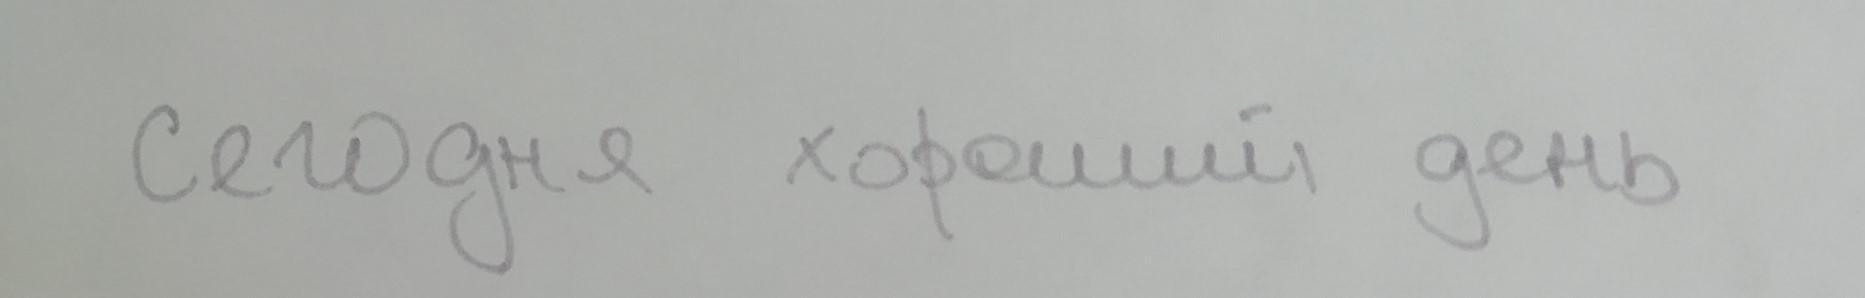 Сегодня хороший день